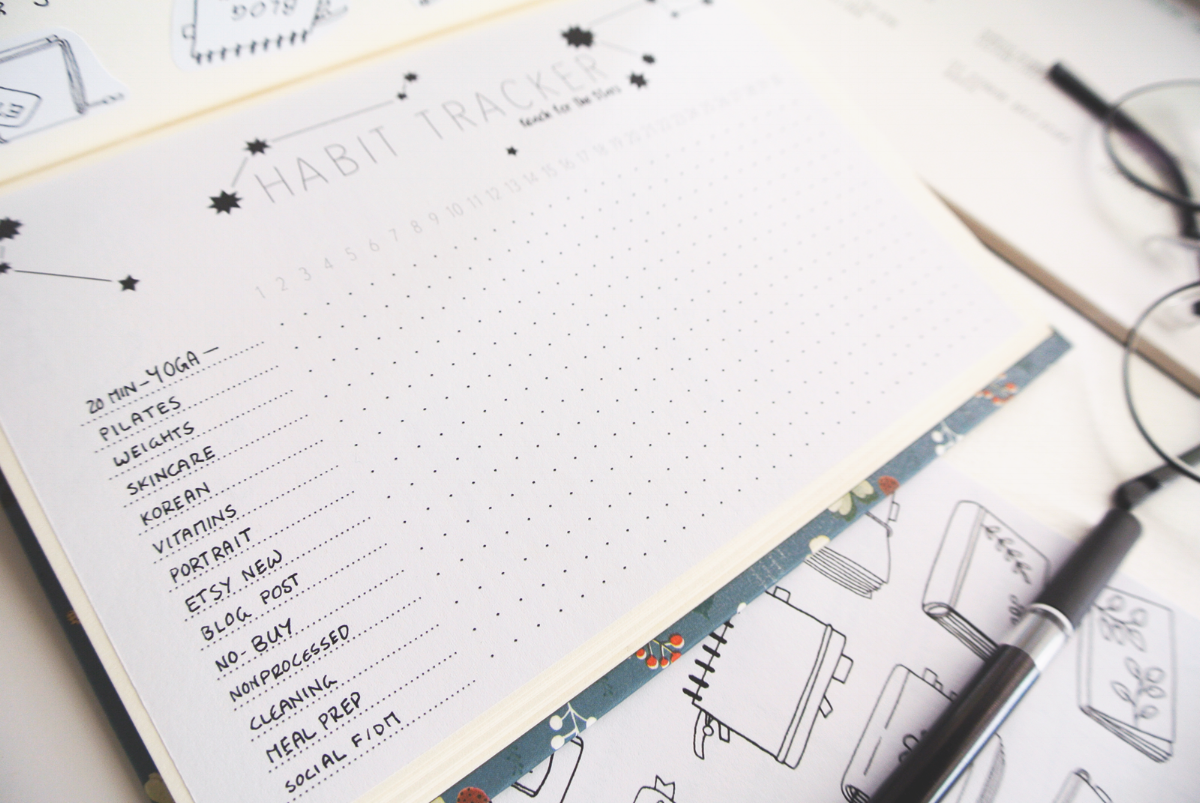 BLOG
HABIT TRACKER
reach for the stars
1 2 3 4 5 6 7 8 9 10 11 12 13 14 15 16 17 18 19 20 21 22 23
20 MIN-YOGA —
PILATES
WEIGHTS
SKINCARE
KOREAN
VITAMINS
PORTRAIT
ETSY NEW
BLOG POST
NO-BUY
NONPROCESSED
CLEANING
MEAL PREP
SOCIAL F/DM